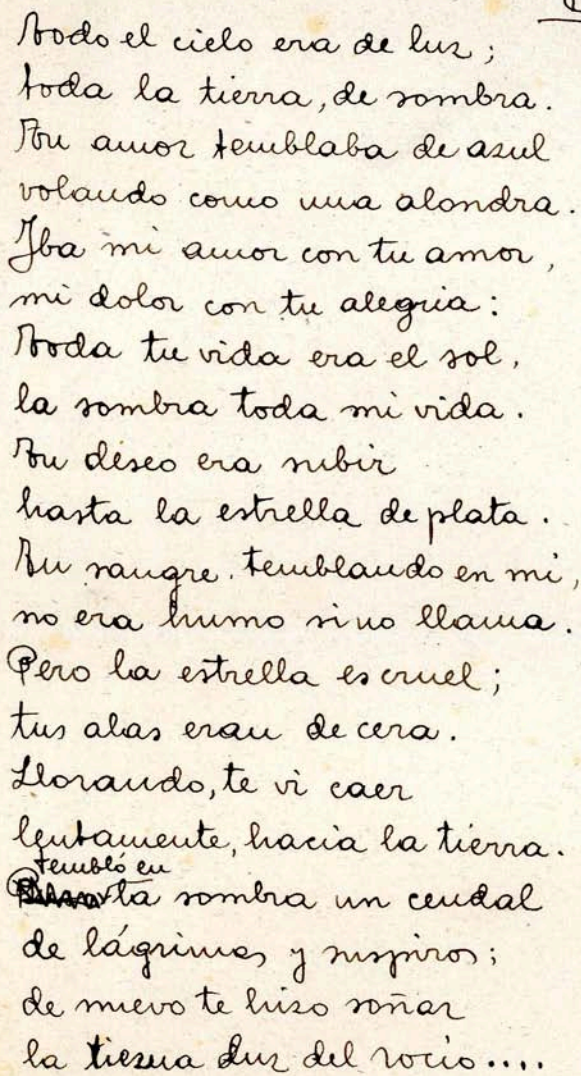 Todo el cielo era de luz;
toda la tierra, de sombra.
Tu amor temblaba de azul
volando como una alondra.
Iba mi amor con tu amor,
mi dolor con tu alegria:
Toda tu vida era el sol,
la sombra toda mi vida.
Tu deseo era subir
hasta la estrella de plata.
Tu sangre, temblando en mi,
no era humo sino llama.
Pero la estrella es cruel;
tus alas eran de cera.
Llorando, te vi caer
lentamente, hacia la tierra.
tembló en
la sombra un cendal
de lágrimas y suspiros;
de nuevo te hizo soñar
la tierna luz del rocío....